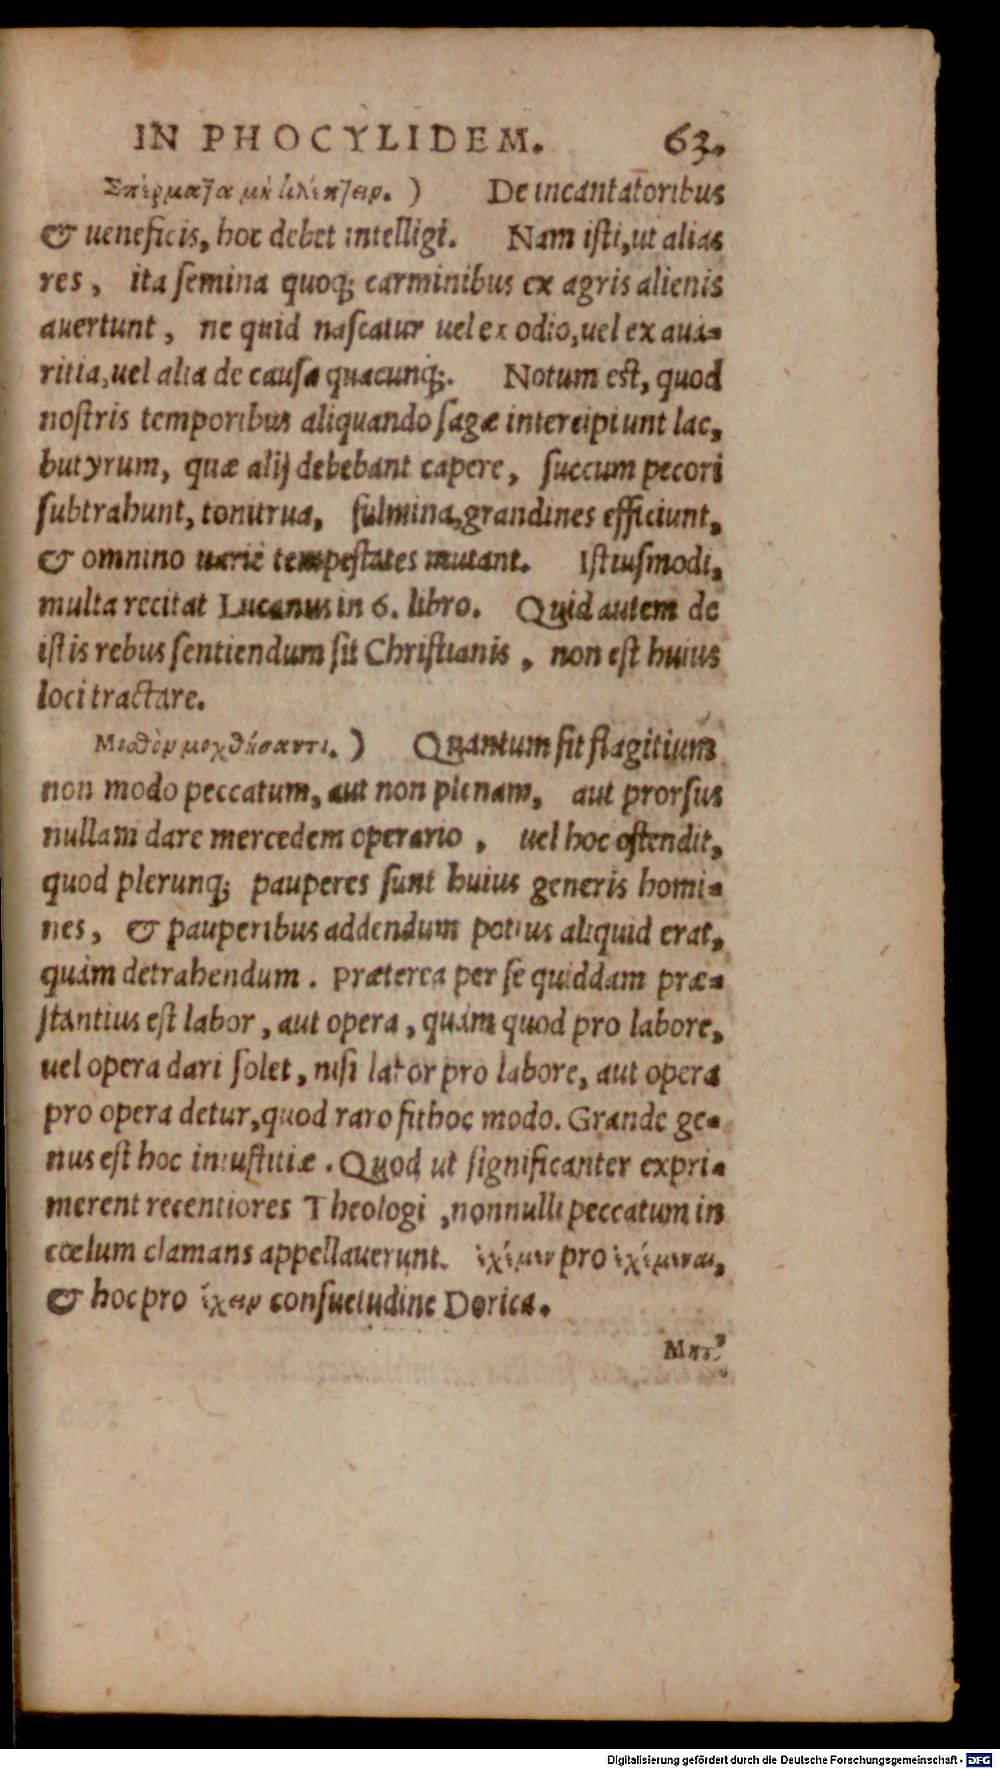 IN PHOCYLIDEM. 63.
Σπέρματα μὴ κλέπτειν. ) De incantatoribus
& ueneficis, hoc debet intelligi. Nam iſti, ut alias
res, ita ſemina quoq; carminibus ex agris alienis
auertunt, ne quid naſcatur uel ex odio, uel ex aua-
ritia, uel alia de cauſa quacunq;. Notum eſt, quod
noſtris temporibus aliquando ſagæ intercipiunt lac,
butyrum, quæ alij debebant capere, ſuccum pecori
ſubtrahunt, tonitrua, fulmina, grandines efficiunt,
& omnino uariè tempeſtates mutant. Iſtiuſmodi,
multa recitat Lucanus in 6. libro. Quid autem de
iſtis rebus ſentiendum ſit Chriſtianis, non eſt huius
loci tractare.
Μισθὸν μοχθήσαντι. ) Quantum ſit flagitium
non modo peccatum, aut non plenam, aut prorſus
nullam dare mercedem operario, uel hoc oſtendit,
quod plerunq; pauperes ſunt huius generis homi-
nes, & pauperibus addendum potius aliquid erat,
quàm detrahendum. Præterea per ſe quiddam præ-
ſtantius eſt labor, aut opera, quàm quod pro labore,
uel opera dari ſolet, niſi labor pro labore, aut opera
pro opera detur, quod raro fit hoc modo. Grande ge-
nus eſt hoc iniuſtitiæ. Quod ut ſignificanter expri-
merent recentiores Theologi, nonnulli peccatum in
cœlum clamans appellauerunt. ἐχέμεν pro ἐχέμεναι,
& hoc pro ἔχειν conſuetudine Dorica.
Digitalisierung gefördert durch die Deutsche Forschungsgemeinschaft - DFG